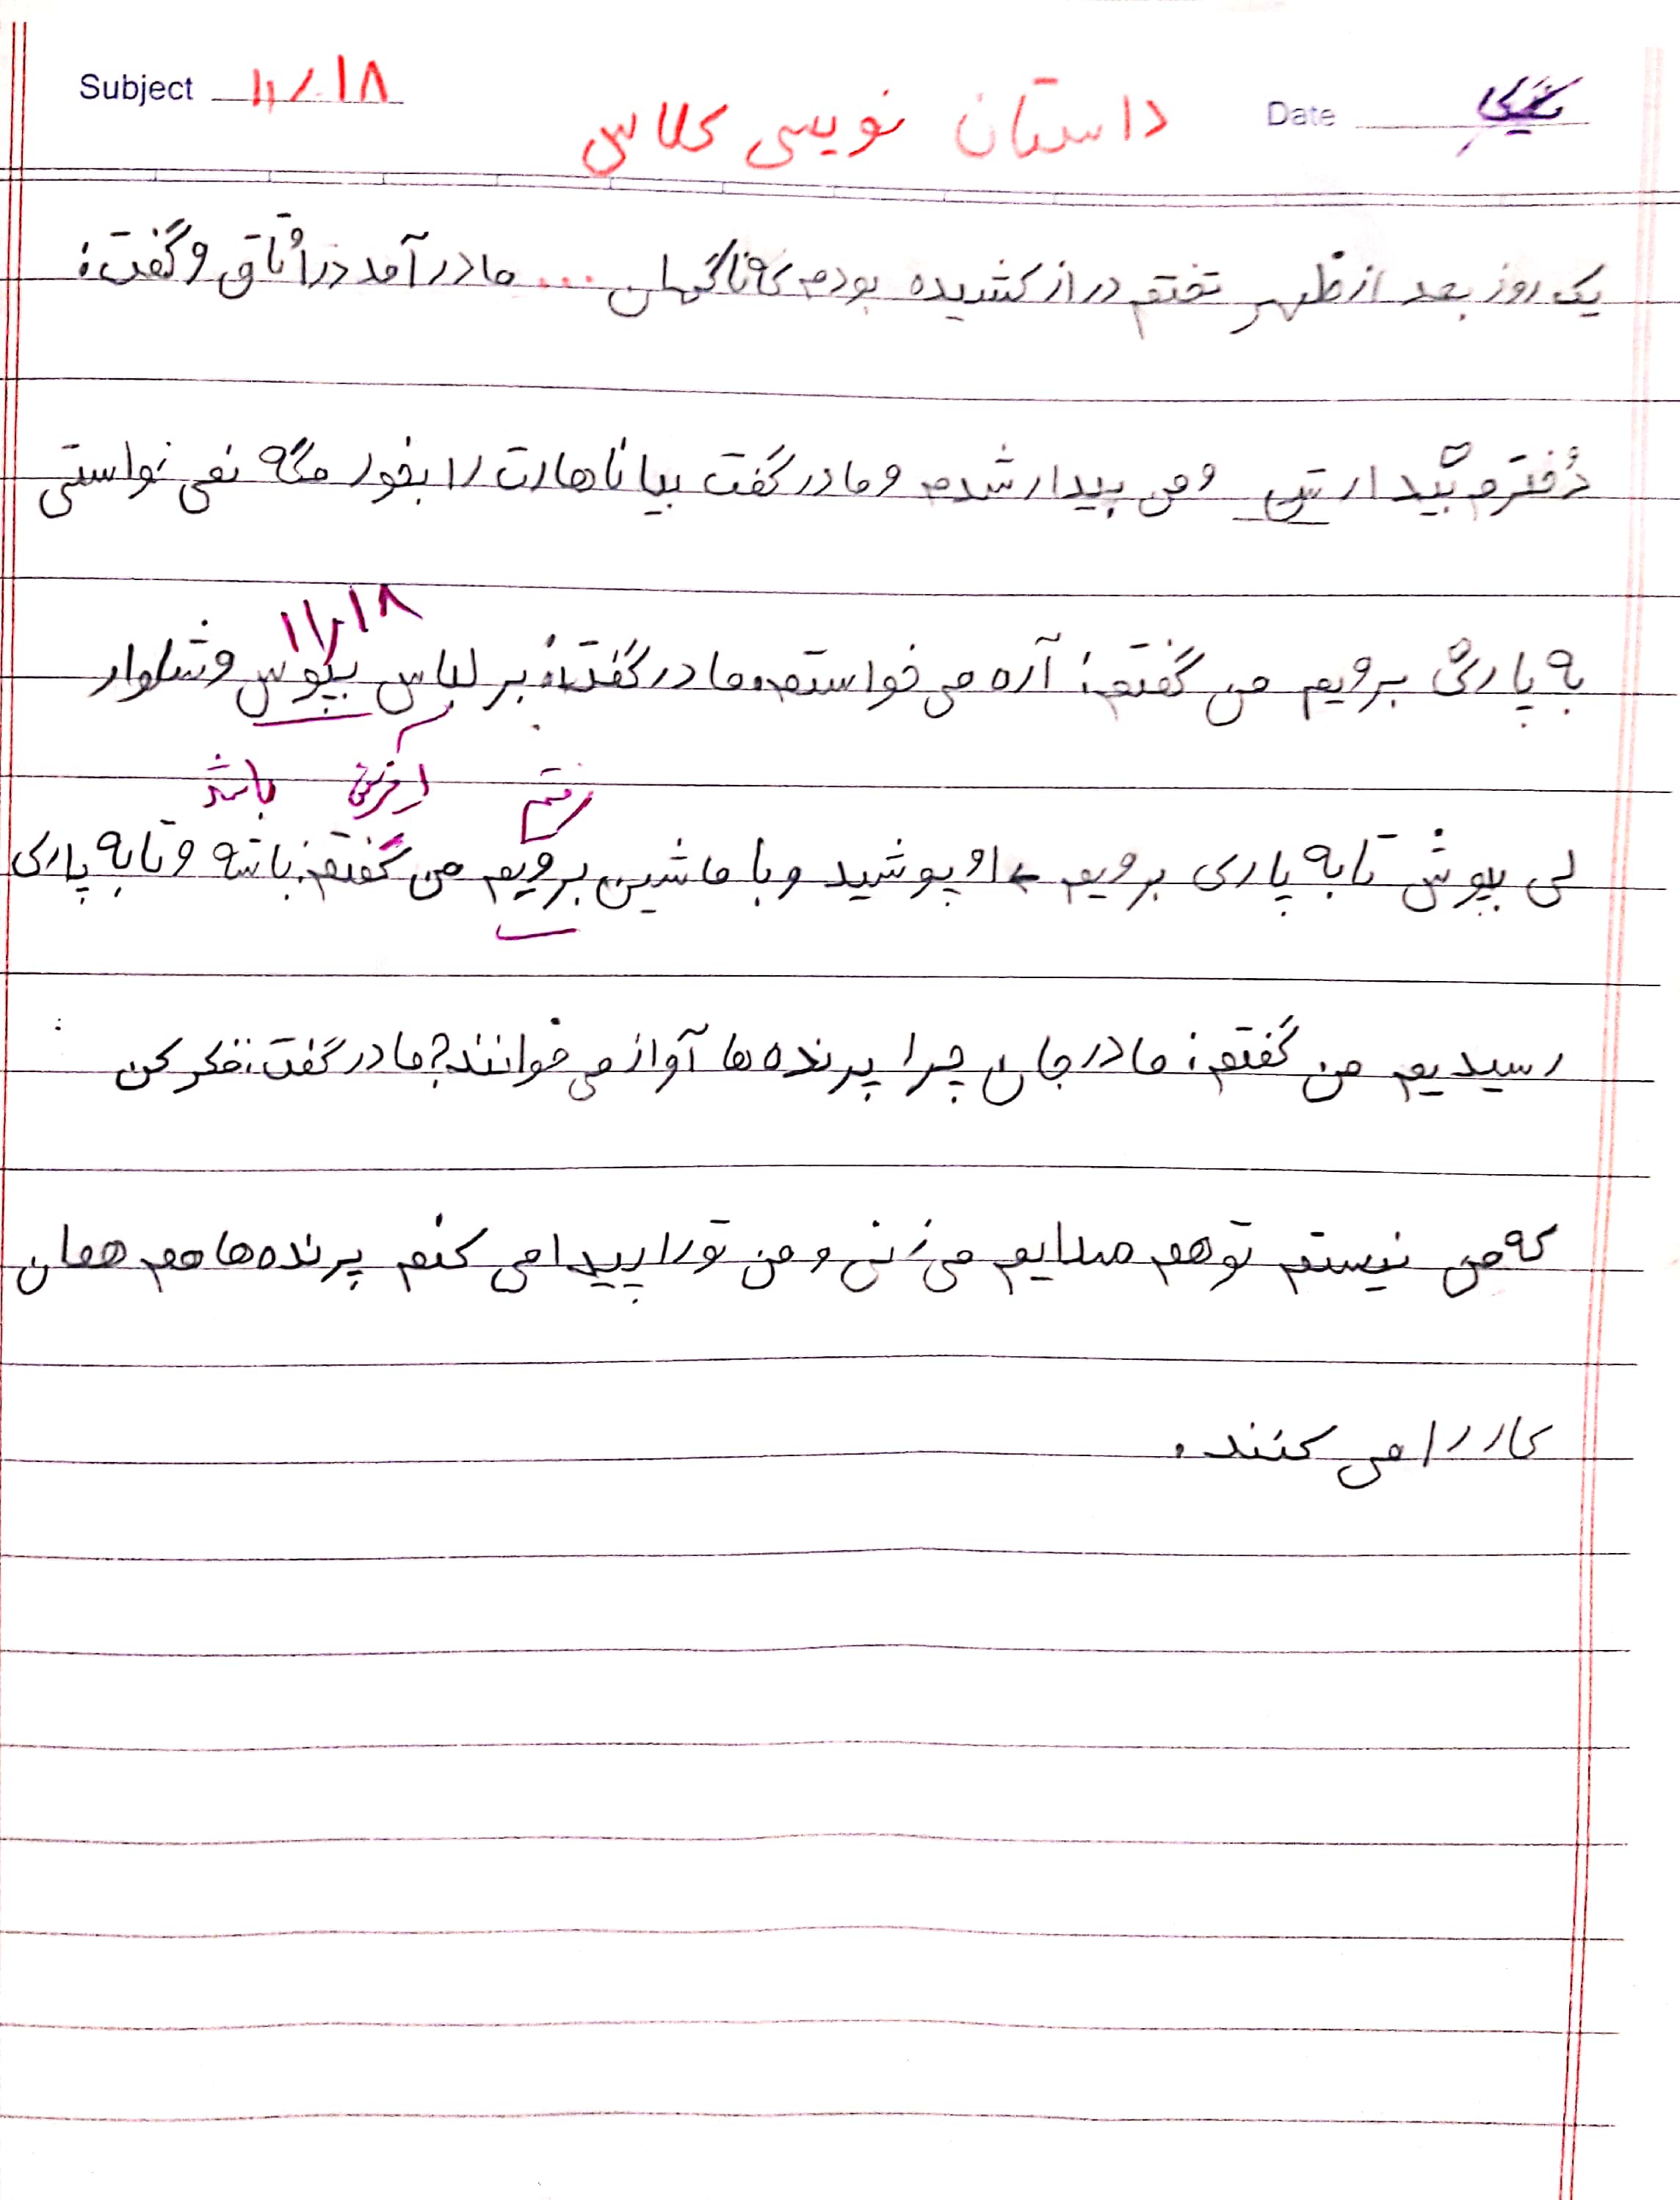 Subject ۱۱/۱۸
داستان نویسی کلاس
Date
یک روز بعد از ظهر تختم دراز کشیده بودم که ناگهان ... مادر آمد در اُتاق و گفت:
دُفترم بیدار تش و من بیدار شدم و مادر گفت بیا ناهارت را بخور مگه نمی نواستی
به پارک برویم من گفتم: آره می خواستم. مادر گفت: بر لباس بپوس و شلوار
۱۱/۱۸
رفتیم آفرین باشد
لی بپوش تا به پارک برویم او پوشید و با ماشین برویم من گفتم: باشه و تا به پارک
رسیدیم من گفتم: مادر جان چرا پرنده ها آواز می خوانند؟ مادر گفت: فکر کن
که من نیستم تو هم صدایم می زنی و من تو را پیدا می کنم پرنده ها هم همان
کار را می کنند.